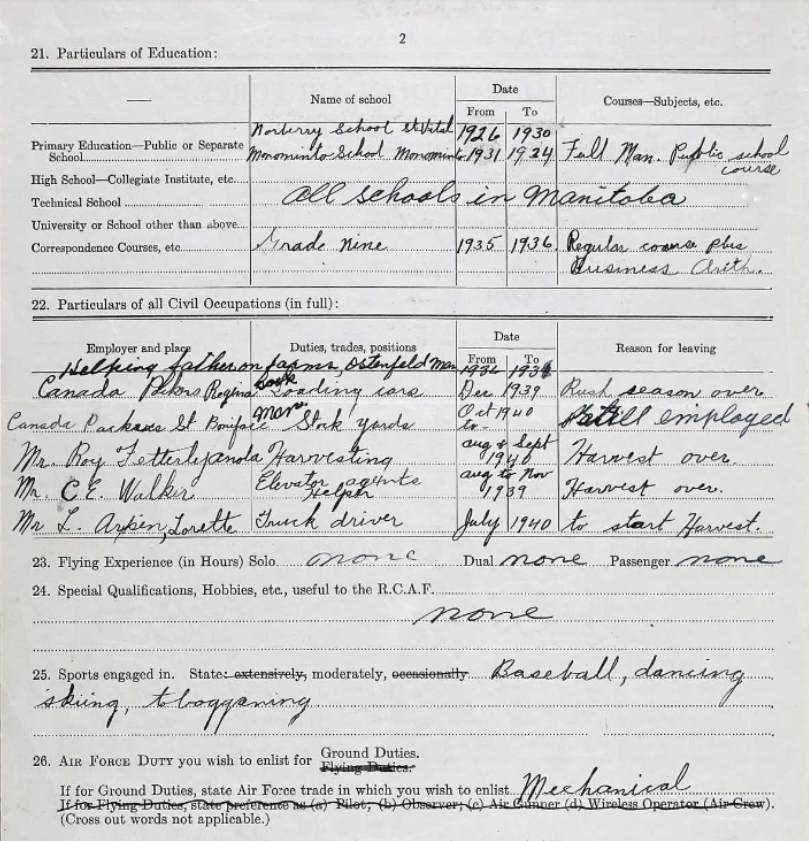 2
21. Particulars of Education:
Name of school Date Courses—Subjects, etc.
From To
Norberry School St Vital 1926 1930
Primary Education—Public or Separate School Monominto School Monominto 1931 1934 Full Man. Public school
course
High School—Collegiate Institute, etc.
Technical School All schools in Manitoba
University or School other than above
Correspondence Courses, etc. Grade nine 1935 1936 Regular course plus
Business Arith.
22. Particulars of all Civil Occupations (in full):
Employer and place Duties, trades, positions Date Reason for leaving
From To
Helping father on farms, Ostenfeld Man
Canada Regina Sask Loading cars Dec 1939 Rush season over
Canada Packers St Boniface Man. Stock yards Oct 1940 to - Still employed
Mr. Roy Harvesting Aug & Sept 1940 Harvest over.
Mr. C.E. Walker Elevator agents Helper Aug to Nov 1939 Harvest over.
Mr L. Lorette Truck driver July 1940 to start Harvest.
23. Flying Experience (in Hours) Solo none Dual none Passenger none
24. Special Qualifications, Hobbies, etc., useful to the R.C.A.F.
none
25. Sports engaged in. State: extensively, moderately, occasionally Baseball, dancing
skiing, tobogganing
26. AIR FORCE DUTY you wish to enlist for Ground Duties.
Flying Duties.
If for Ground Duties, state Air Force trade in which you wish to enlist Mechanical
If for Flying Duties, state preference as (a) Pilot; (b) Observer; (c) Air Gunner (d) Wireless Operator (Air Crew).
(Cross out words not applicable.)